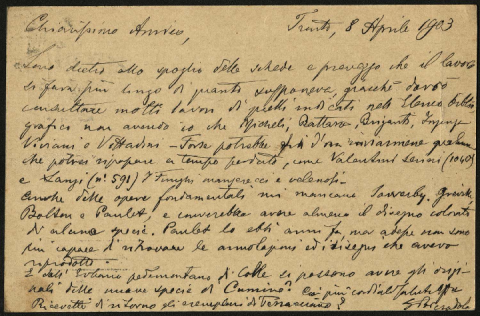 Chiarissimo Amico,
Trento, 8 Aprile 1903
Sono dietro allo spoglio delle schede e preveggo che il lavoro
si farà più lungo di quanto supponeva, giacchè dovrò
consultare molti lavori di quelli indicati nell' Elenco biblio
grafico non avendo io che Micheli, Battarra, Briganti, Inzenga
Viviani e Vittadini - Forse potrebbe Ella d'ora inviarmene qualcuno
che potrei rispogliare a tempo perduto, come Valentini Serini (1040)
e Sanzi (n° 591) I funghi mangerecci e velenosi.
Anche delle opere fondamentali mi mancano Sowerby, Greville
Bolton e Paulet, e converrebbe avere almeno il disegno colorato
di alcune specie. Paulet lo ebbi anni fa, ma adesso non sono
più capace di ritrovare le annotazioni ed i disegni che avevo
riprodotti.
E dall' Erbario pedemontano di Colla si possono avere gli origi
nali delle nuove specie di Cumino? Coi più cordiali saluti
Ricevette di ritorno gli esemplari di Terracciano?
G Bresadola